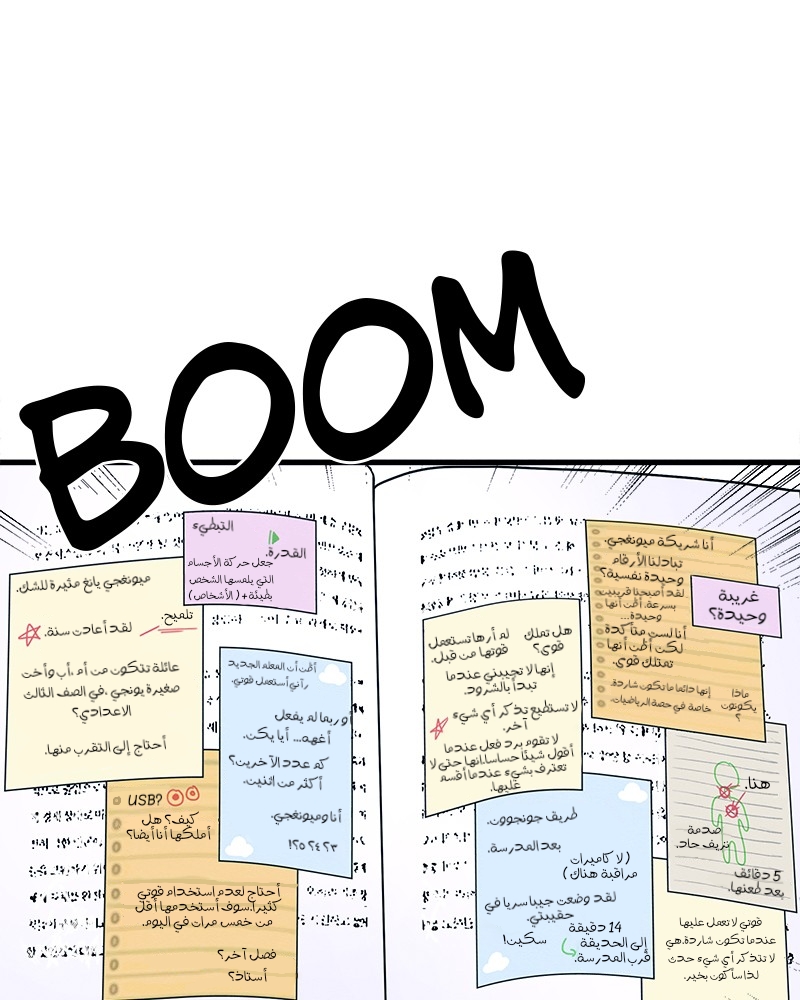 BOOM
أنا شريكة ميونغجي.
تبادلنا الأرقام
وحيدة نفسية؟
لقد أصبحنا قريبين
بسرعة. أظن أنها
وحيدة...
أنا لست متأكدة
لكن أظن أنها
تمتلك قوى.
إنها دائما ما تكون شاردة.
خاصة في حصة الرياضيات.
ماذا
يكونون
؟
غريبة
وحيدة؟
هل تملك
قوى؟
لم أرها تستعمل
قوتها من قبل.
إنها لا تجيبني عندما
تبدأ بالشرود.
لا تستطيع تذكر أي شيء
آخر.
لا تقوم برد فعل عندما
أقول شيئا حساسا.انها حتى لا
تعترف بشيء عندما أقسم
عليها.
هنا.
صدمة
نزيف حاد.
5 دقائق
بعد طعنها.
طريف جونجوون.
بعد المدرسة.
(لا كاميرات
مراقبة هناك)
لقد وضعت جيبا سريا في
حقيبتي.
14 دقيقة
إلى الحديقة
قرب المدرسة.
سكين!
قوتي لا تعمل عليها
عندما تكون شاردة.هي
لا تتذكر أي شيء حدث
لذا سأكون بخير.
التبطيء
القدرة.
جعل حركة الأجسام
التي يلمسها الشخص
بطيئة+(الأشخاص)
ميونغجي يانغ مثيرة للشك.
تلميح.
لقد أعادت سنة.
عائلة تتكون من أم ،أب وأخت
صغيرة يونجي .في الصف الثالث
الاعدادي؟
أحتاج إلى التقرب منها.
أظن أن المعلم الجديد
رآني أستعمل قوتي.
أو ربما لم يفعل
أغهه... أيا يكن.
كم عدد الآخرين؟
أكثر من اثنين.
أنا وميونغجي.
٢٣ ٢٤ ٢٥!؟
USB?
كيف؟ هل
أملكها أنا أيضا؟
أحتاج لعدم استخدام قوتي
كثيرا.سوف أستخدمها أقل
من خمس مرات في اليوم.
فصل آخر؟
أستاذ؟